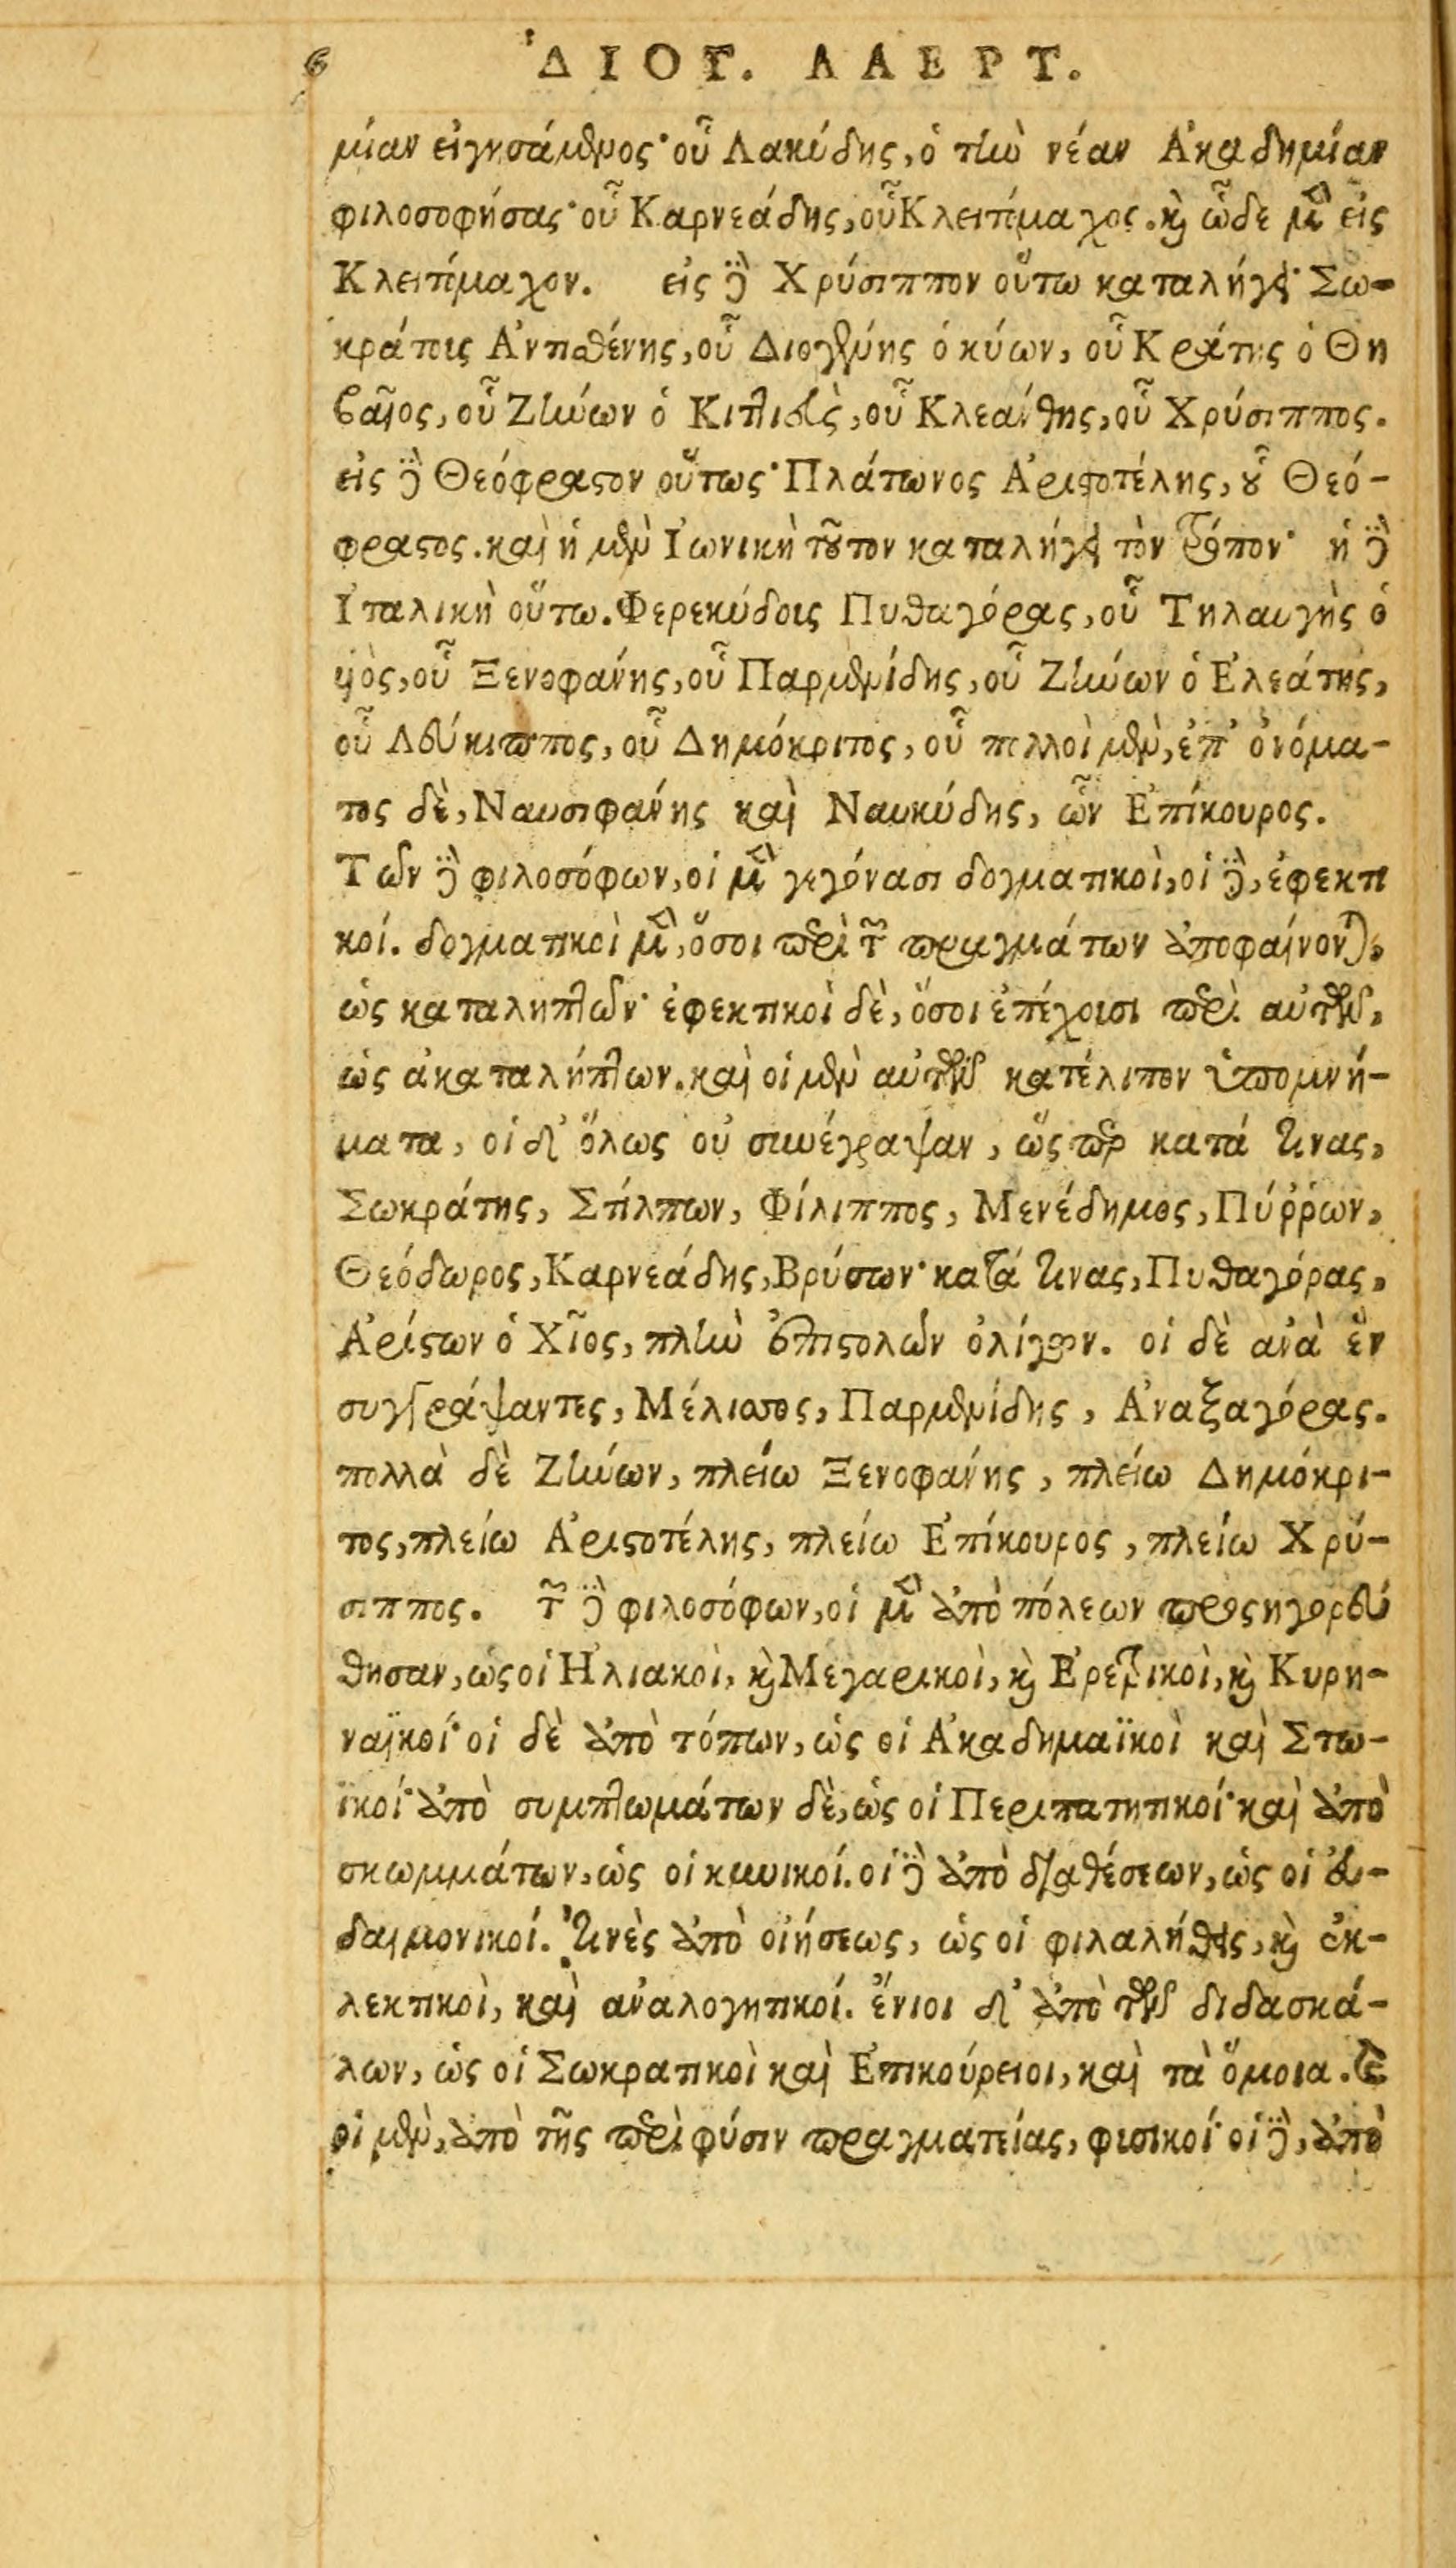 6 ΔΙΟΓ. ΛΑΕΡΤ.
μίαν εἰγησάμενος· οὗ Λακύδης, ὁ τὴν νέαν Ἀκαδημίαν
φιλοσοφήσας· οὗ Καρνεάδης, οὗ Κλειτόμαχος. καὶ ὧδε μὲν εἰς
Κλειτόμαχον. εἰς δὲ Χρύσιππον οὕτω καταλήγει· Σω-
κράτους Ἀντισθένης, οὗ Διογένης ὁ κύων, οὗ Κράτης ὁ Θη
βαῖος, οὗ Ζήνων ὁ Κιτιεὺς, οὗ Κλεάνθης, οὗ Χρύσιππος.
εἰς δὲ Θεόφραστον οὕτως· Πλάτωνος Ἀριστοτέλης, οὗ Θεό-
φραστος. καὶ ἡ μὲν Ἰωνικὴ τοῦτον καταλήγει τὸν τρόπον· ἡ δὲ
Ἰταλικὴ οὕτω. Φερεκύδους Πυθαγόρας, οὗ Τηλαυγὴς ὁ
υἱὸς, οὗ Ξενοφάνης, οὗ Παρμενίδης, οὗ Ζήνων ὁ Ἐλεάτης,
οὗ Λεύκιππος, οὗ Δημόκριτος, οὗ πολλοὶ μὲν, ἐπ' ὀνόμα-
τος δὲ, Ναυσιφάνης καὶ Ναυκύδης, ὧν Ἐπίκουρος.
Τῶν δὲ φιλοσόφων, οἱ μὲν γεγόνασι δογματικοὶ, οἱ δὲ, ἐφεκτι
κοί. δογματικοὶ μὲν, ὅσοι περὶ τῶν πραγμάτων ἀποφαίνονται,
ὡς καταληπτῶν· ἐφεκτικοὶ δὲ, ὅσοι ἐπέχουσι περὶ αὐτῶν,
ὡς ἀκαταλήπτων. καὶ οἱ μὲν αὐτῶν κατέλιπον ὑπομνή-
ματα, οἱ δ' ὅλως οὐ συνέγραψαν, ὥς περ κατά τινας,
Σωκράτης, Στίλπων, Φίλιππος, Μενέδημος, Πύῤῥων,
Θεόδωρος, Καρνεάδης, Βρύσων· κατά τινας, Πυθαγόρας,
Ἀρίστων ὁ Χῖος, πλὴν ἐπιστολῶν ὀλίγων. οἱ δὲ ἀνὰ ἓν
συγγράψαντες, Μέλισσος, Παρμενίδης, Ἀναξαγόρας.
πολλὰ δὲ Ζήνων, πλείω Ξενοφάνης, πλείω Δημόκρι-
τος, πλείω Ἀριστοτέλης, πλείω Ἐπίκουρος, πλείω Χρύ-
σιππος. τῶν δὲ φιλοσόφων, οἱ μὲν ἀπὸ πόλεων προσηγορεύ
θησαν, ὡς οἱ Ἠλιακοὶ, καὶ Μεγαρικοὶ, καὶ Ἐρετρικοὶ, καὶ Κυρη-
ναϊκοί· οἱ δὲ ἀπὸ τόπων, ὡς οἱ Ἀκαδημαϊκοὶ καὶ Στω-
ϊκοί· ἀπὸ συμπτωμάτων δὲ, ὡς οἱ Περιπατητικοί· καὶ ἀπὸ
σκωμμάτων, ὡς οἱ κυνικοί. οἱ δὲ ἀπὸ διαθέσεων, ὡς οἱ εὐ-
δαιμονικοί. τινὲς ἀπὸ οἰήσεως, ὡς οἱ φιλαλήθεις, καὶ ἐκ-
λεκτικοὶ, καὶ ἀναλογητικοί. ἔνιοι δ' ἀπὸ τῶν διδασκά-
λων, ὡς οἱ Σωκρατικοὶ καὶ Ἐπικούρειοι, καὶ τὰ ὅμοια. καὶ
οἱ μὲν, ἀπὸ τῆς περὶ φύσιν πραγματείας, φυσικοί· οἱ δὲ, ἀπὸ